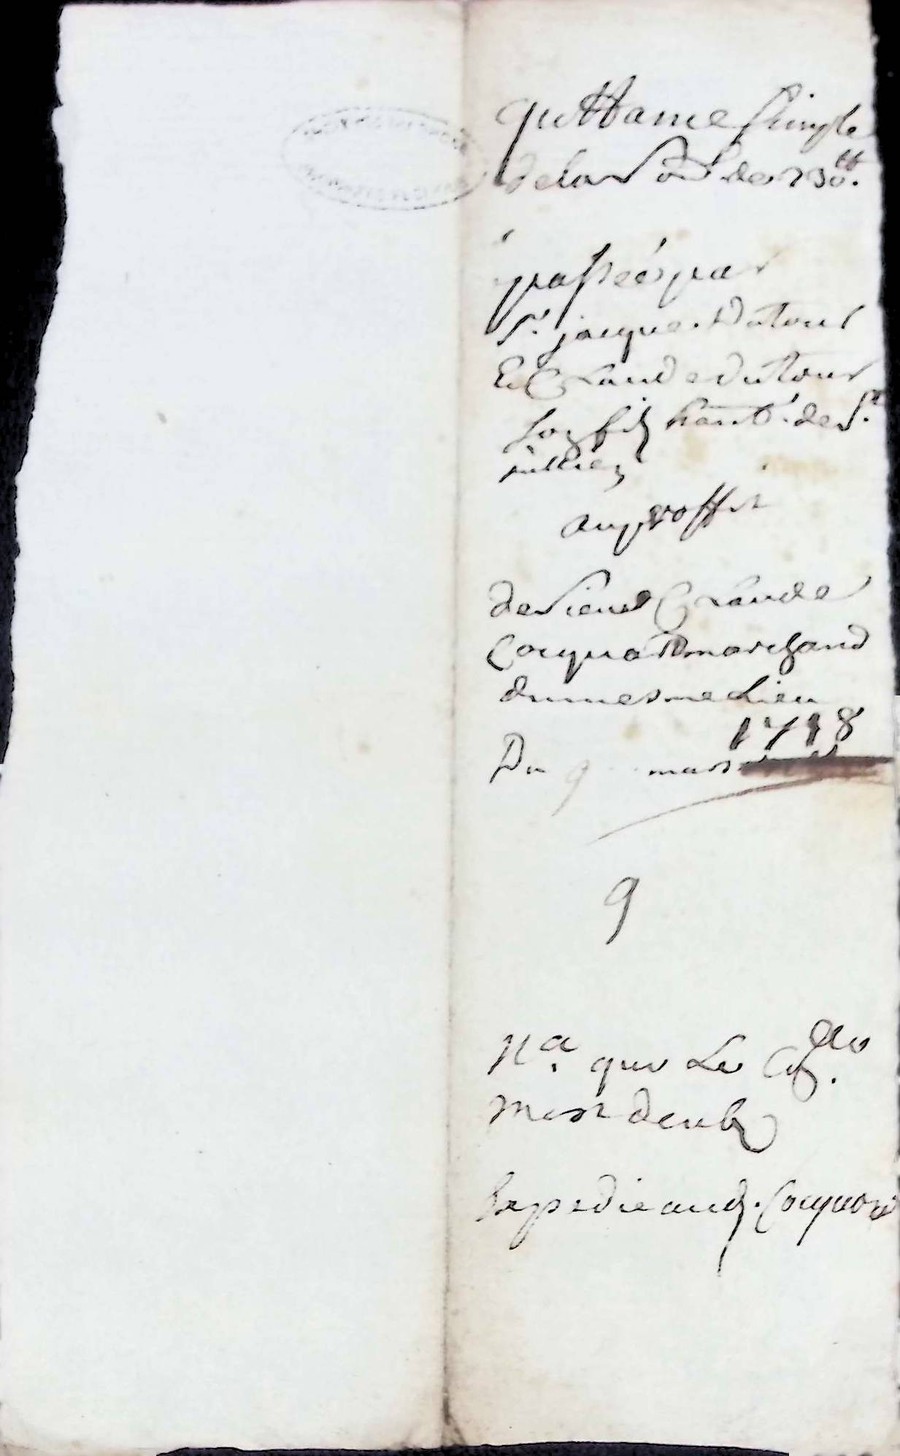 quittance simple
de la so.e de 230.tt
passée par
Sr. jacque Dutour
Et Claude dutour
son fils hant. de St.
jullien
au proffit
de sieur Claude
Cocquat marchand
du mesme Lieu
1718
Du 9 mars
9
N.a que Le
m'est deub
Expedié aud.